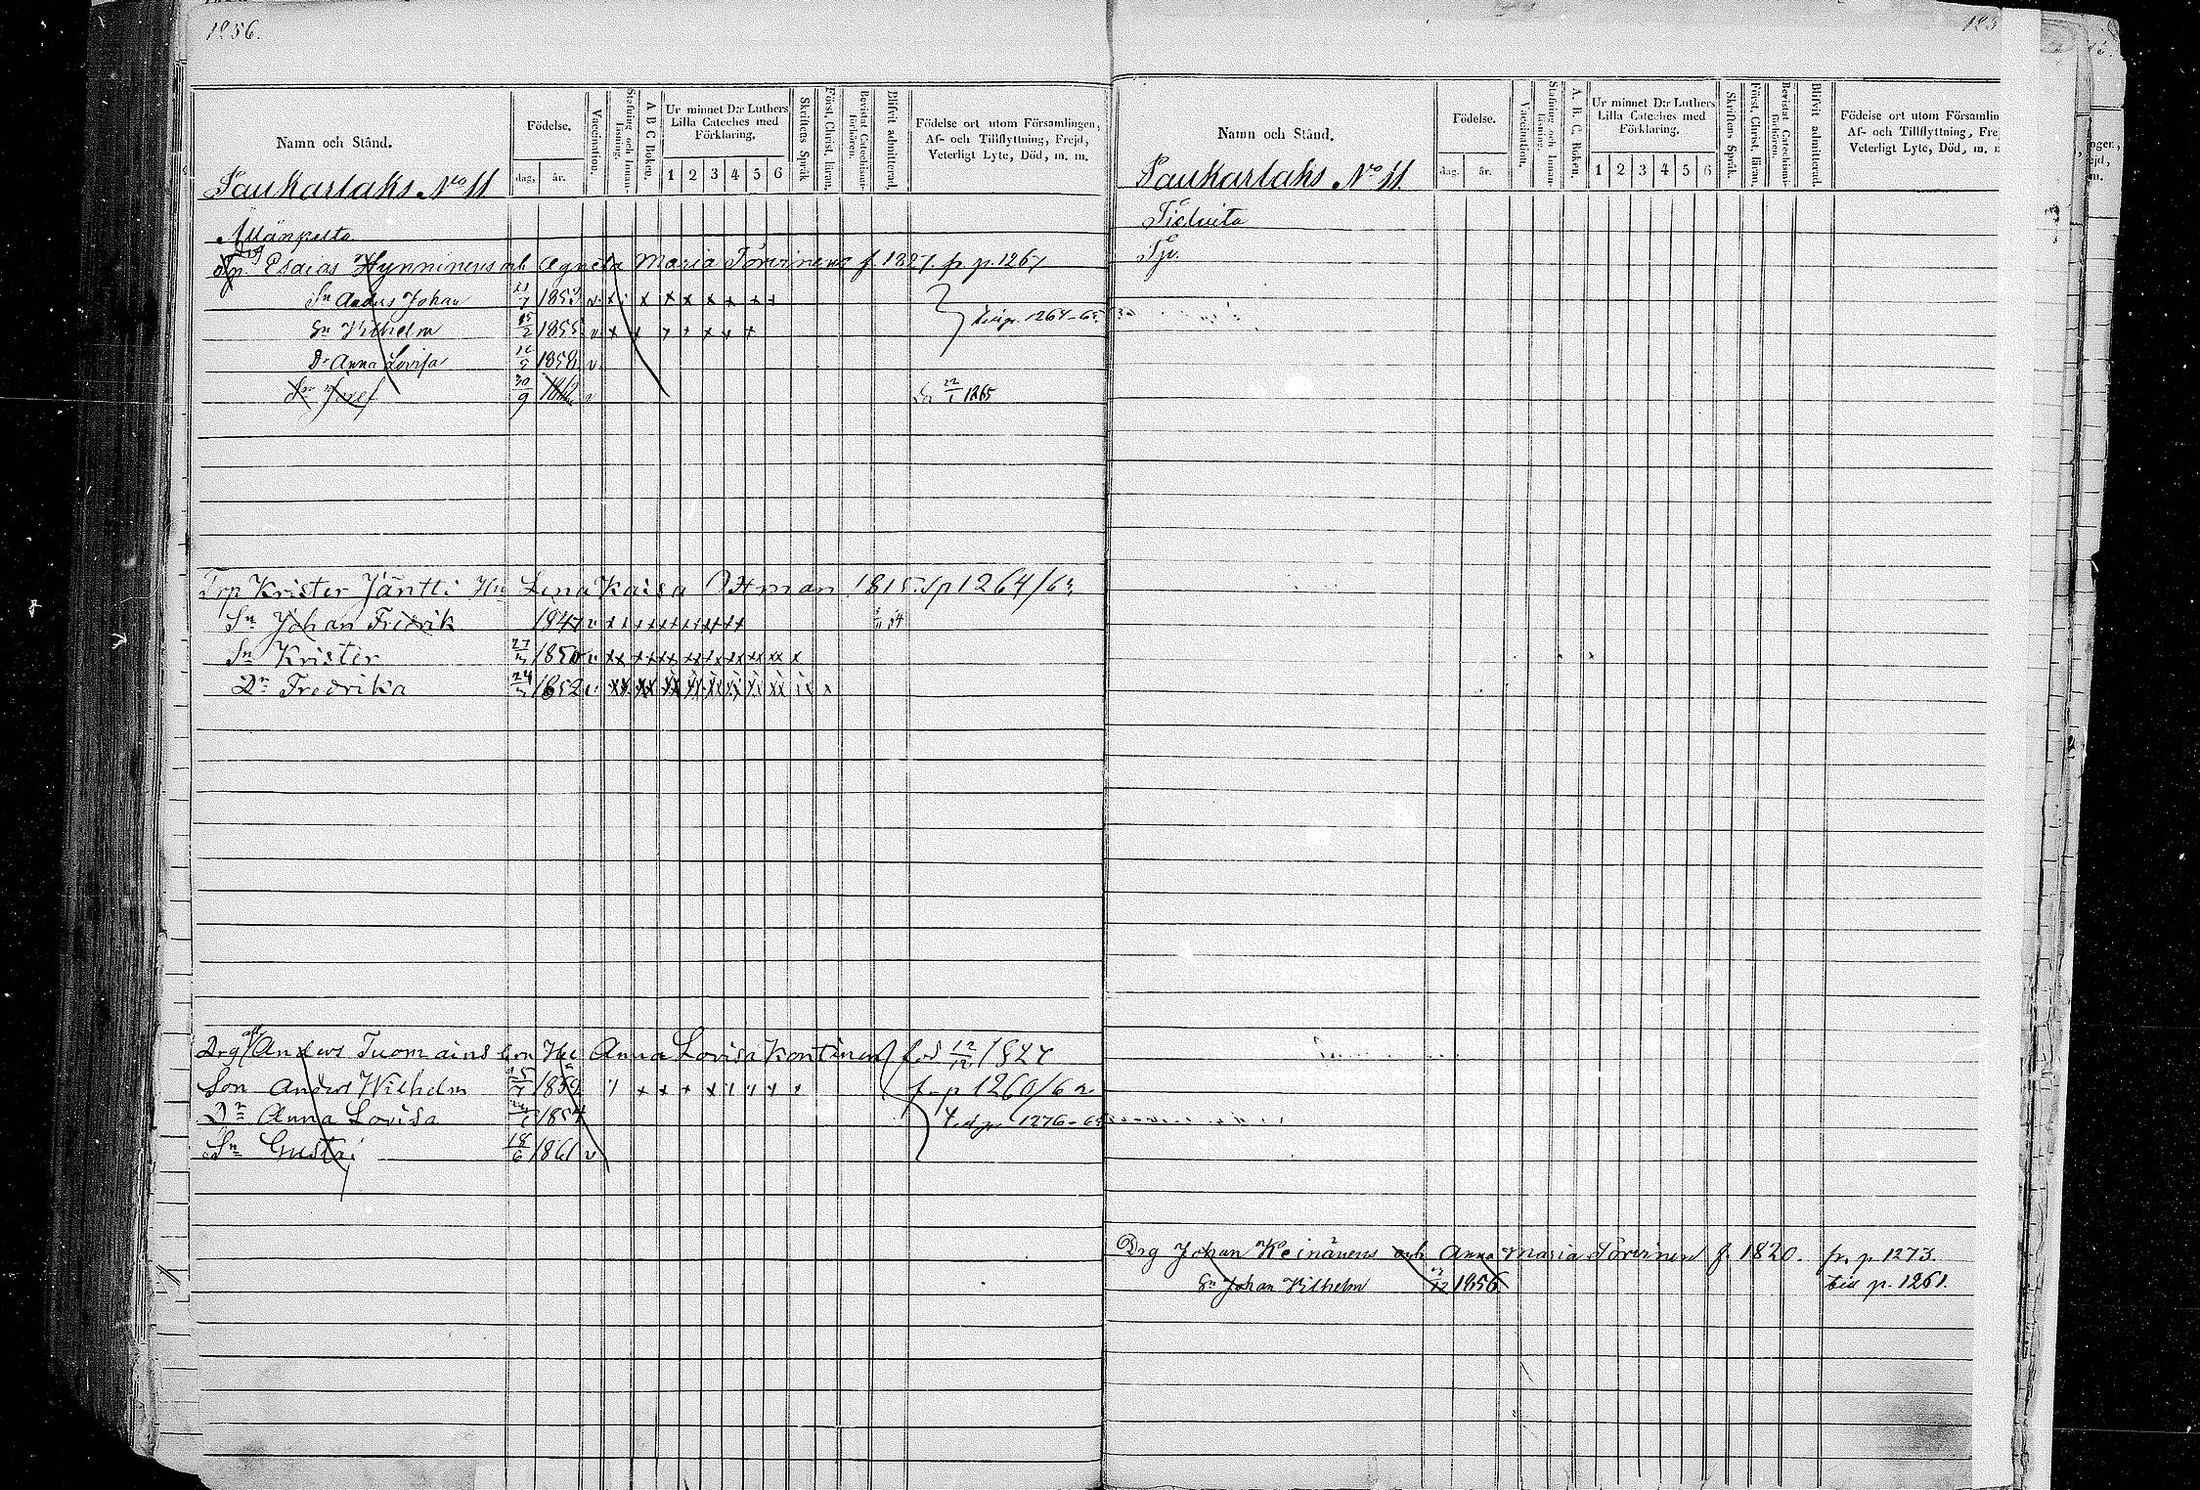 1256.
Namn och Stånd.
Födelse,
dag,
år.
Vaccination.
Stafning och Innan-läsning.
A B C Boken.
Ur minnet D:r Luthers
Lilla Cateches med
Förklaring.
1 2 3 4 5 6
Skriftens Språk
Först. Christ. läran.
Bevistat Catechismi-förhören.
Blifvit admitterad.
Födelse ort utom Församlingen,
Af- och Tillflyttning, Frejd,
Veterligt Lyte, Död, m. m.
Saukarlaks No 11
Esaias Hynninens och Agneta Maria Törvinens f. 1827. fr p. 1261
Sn Anders Johan 11/7 1853 v
Sn Vilhelm 15/2 1855 v 1264-65
Dr Anna Lovisa 1858 v
Sn Josef 30/9 v 22/1 1865
Trp Krister Jäntti Hu Lena Kaisa Ottman 1815. fp 1264/63
Sn Johan Fredrik 1847 v
Sn Krister 27 1850 v
Dr Fredrika 24 1852 v
Drg Anders Tuomainens Hu Anna Lovisa Kontinen föd 12/12 1827
Son Anders Wilhelm 1852 fr p 1260/62
Dr Anna Lovisa 1857 1276-65
Sn Gustaf 18/6 1861 v
125
Namn och Stånd.
Födelse.
dag.
år.
Vaccination.
Stafning och Innan-läsning.
A. B. C. Boken.
Ur minnet D:r Luthers
Lilla Cateches med
Förklaring.
1 2 3 4 5 6
Skriftens Språk.
Först. Christ. läran.
Bevistat Catechismi-förhören.
Blifvit admitterad.
Födelse ort utom Församlin
Af- och Tillflyttning, Frej
Veterligt Lyte, Död, m. m.
Saukarlaks No 11.
Drg Johan Keinänens och Anna Maria Törvinen f. 1820. fr. p. 1273.
Sn Johan Vilhelm 1856 p. 1261.